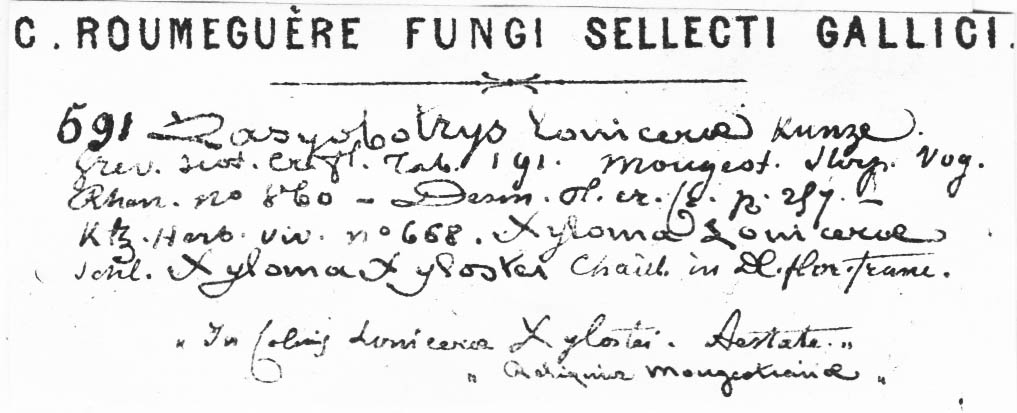 C. ROUMEGUÈRE FUNGI SELLECTI GALLICI.
591 Lasyobotrys Lonicerae Kunze.
Grev. Scot. Crypt. Tab. 191. Mougeot. Stirp. Vog.
Rhen. no 860 – Desm. Pl. cr. p. 257. –
Ktz. Herb. viv. no 668. Xyloma Lonicerae
Schl. Xyloma Xylostei Chaill. in Dl. flor. franc.
„ In foliis Lonicerae Xylostei. Aestate. „
„ Reliquiae Mougeotiana „